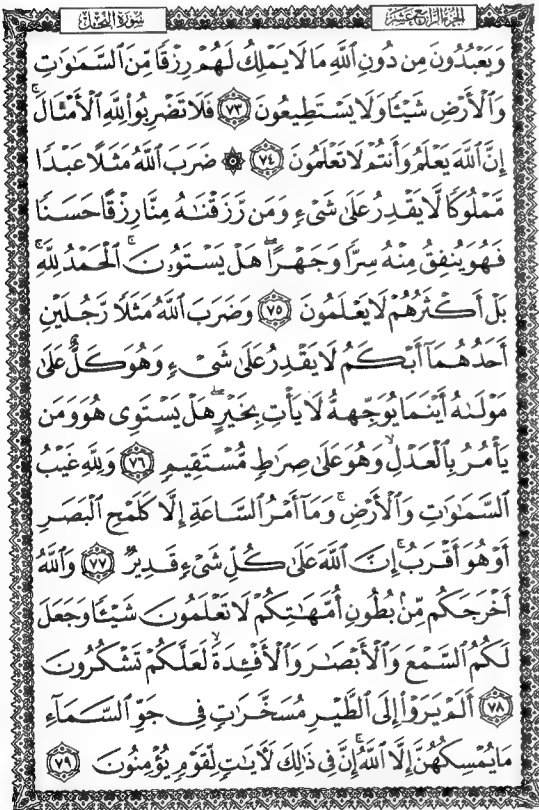 الجزء الرابع عشر
سورة النحل
وَيَعْبُدُونَ مِن دُونِ ٱللَّهِ مَا لَا يَمْلِكُ لَهُمْ رِزْقًا مِّنَ ٱلسَّمَٰوَٰتِ
وَٱلْأَرْضِ شَيْـًٔا وَلَا يَسْتَطِيعُونَ ﴿٧٣﴾ فَلَا تَضْرِبُوا۟ لِلَّهِ ٱلْأَمْثَالَ ۚ
إِنَّ ٱللَّهَ يَعْلَمُ وَأَنتُمْ لَا تَعْلَمُونَ ﴿٧٤﴾ ۞ ضَرَبَ ٱللَّهُ مَثَلًا عَبْدًا
مَّمْلُوكًا لَّا يَقْدِرُ عَلَىٰ شَىْءٍ وَمَن رَّزَقْنَٰهُ مِنَّا رِزْقًا حَسَنًا
فَهُوَ يُنفِقُ مِنْهُ سِرًّا وَجَهْرًا ۖ هَلْ يَسْتَوُۥنَ ۚ ٱلْحَمْدُ لِلَّهِ ۚ
بَلْ أَكْثَرُهُمْ لَا يَعْلَمُونَ ﴿٧٥﴾ وَضَرَبَ ٱللَّهُ مَثَلًا رَّجُلَيْنِ
أَحَدُهُمَآ أَبْكَمُ لَا يَقْدِرُ عَلَىٰ شَىْءٍ وَهُوَ كَلٌّ عَلَىٰ
مَوْلَىٰهُ أَيْنَمَا يُوَجِّههُّ لَا يَأْتِ بِخَيْرٍ ۖ هَلْ يَسْتَوِى هُوَ وَمَن
يَأْمُرُ بِٱلْعَدْلِ ۙ وَهُوَ عَلَىٰ صِرَٰطٍ مُّسْتَقِيمٍ ﴿٧٦﴾ وَلِلَّهِ غَيْبُ
ٱلسَّمَٰوَٰتِ وَٱلْأَرْضِ ۚ وَمَآ أَمْرُ ٱلسَّاعَةِ إِلَّا كَلَمْحِ ٱلْبَصَرِ
أَوْ هُوَ أَقْرَبُ ۚ إِنَّ ٱللَّهَ عَلَىٰ كُلِّ شَىْءٍ قَدِيرٌ ﴿٧٧﴾ وَٱللَّهُ
أَخْرَجَكُم مِّنۢ بُطُونِ أُمَّهَٰتِكُمْ لَا تَعْلَمُونَ شَيْـًٔا وَجَعَلَ
لَكُمُ ٱلسَّمْعَ وَٱلْأَبْصَٰرَ وَٱلْأَفْـِٔدَةَ ۙ لَعَلَّكُمْ تَشْكُرُونَ
﴿٧٨﴾ أَلَمْ يَرَوْا۟ إِلَى ٱلطَّيْرِ مُسَخَّرَٰتٍ فِى جَوِّ ٱلسَّمَآءِ
مَا يُمْسِكُهُنَّ إِلَّا ٱللَّهُ ۗ إِنَّ فِى ذَٰلِكَ لَءَايَٰتٍ لِّقَوْمٍ يُؤْمِنُونَ ﴿٧٩﴾